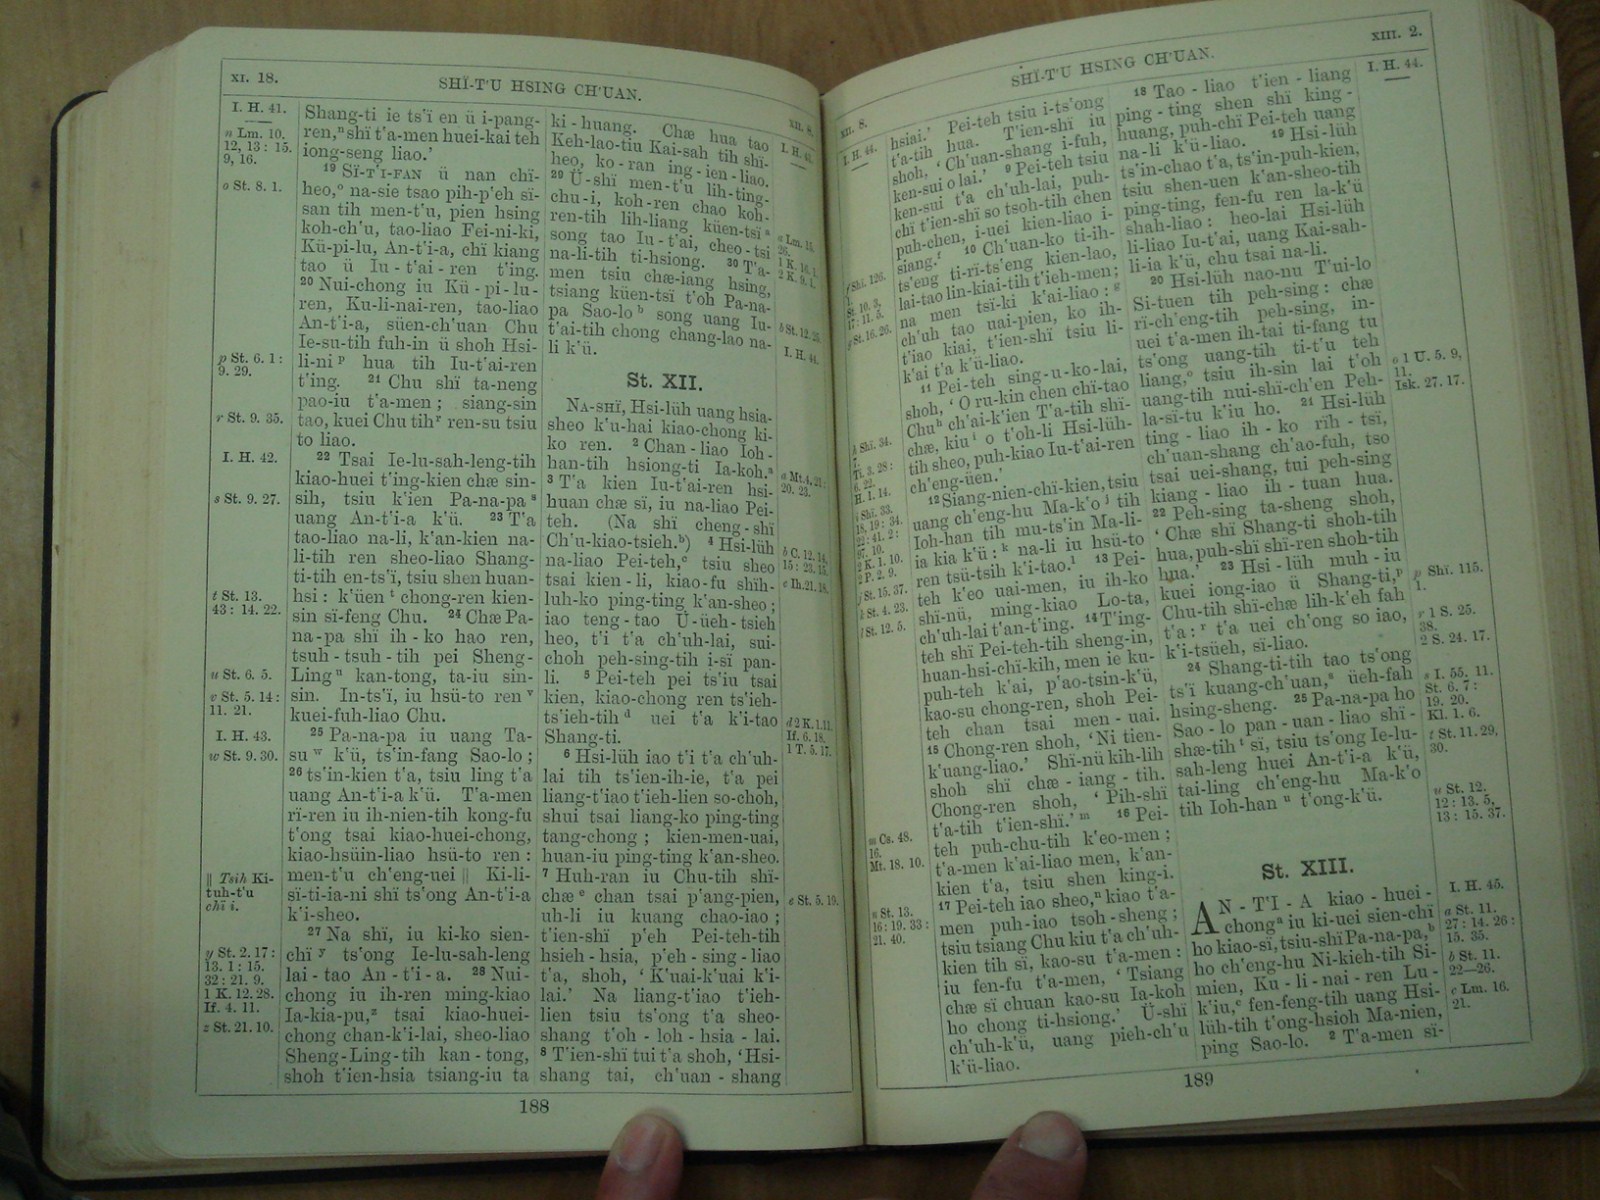 XI. 18.
SHÏ-T'U HSING CH'UAN.
XII. 8.
I. H. 41.
n Lm. 10.
12, 13 : 15.
9, 16.
o St. 8. 1.
p St. 6. 1 :
9. 29.
r St. 9. 35.
I. H. 42.
s St. 9. 27.
t St. 13.
43 : 14. 22.
u St. 6. 5.
v St. 5. 14 :
11. 21.
I. H. 43.
w St. 9. 30.
|| Tsih Ki-
tuh-t'u
chï i.
y St. 2. 17 :
13. 1 : 15.
32 : 21. 9.
1 K. 12. 28.
If. 4. 11.
z St. 21. 10.
Shang-ti ie ts'ï en ü i-pang-
ren,ⁿ shï t'a-men huei-kai teh
iong-seng liao.'
19 SÏ-T'I-FAN ü nan chï-
heo,º na-sie tsao pih-p'eh sï-
san tih men-t'u, pien hsing
koh-ch'u, tao-liao Fei-ni-ki,
Kü-pi-lu, An-t'i-a, chï kiang
tao ü Iu - t'ai - ren t'ing.
20 Nui-chong iu Kü - pi - lu-
ren, Ku-li-nai-ren, tao-liao
An-t'i-a, süen-ch'uan Chu
Ie-su-tih fuh-in ü shoh Hsi-
li-ni p hua tih Iu-t'ai-ren
t'ing. 21 Chu shï ta-neng
pao-iu t'a-men ; siang-sin
tao, kuei Chu tih r ren-su tsiu
to liao.
22 Tsai Ie-lu-sah-leng-tih
kiao-huei t'ing-kien chæ sin-
sih, tsiu k'ien Pa-na-pa s
uang An-t'i-a k'ü. 23 T'a
tao-liao na-li, k'an-kien na-
li-tih ren sheo-liao Shang-
ti-tih en-ts'ï, tsiu shen huan-
hsi : k'üen t chong-ren kien-
sin sï-feng Chu. 24 Chæ Pa-
na-pa shï ih - ko hao ren,
tsuh - tsuh - tih pei Sheng-
Ling u kan-tong, ta-iu sin-
sin. In-ts'ï, iu hsü-to ren v
kuei-fuh-liao Chu.
25 Pa-na-pa iu uang Ta-
su w k'ü, ts'in-fang Sao-lo ;
26 ts'in-kien t'a, tsiu ling t'a
uang An-t'i-a k'ü. T'a-men
rï-ren iu ih-nien-tih kong-fu
t'ong tsai kiao-huei-chong,
kiao-hsüin-liao hsü-to ren :
men-t'u ch'eng-uei || Ki-li-
sï-ti-ia-ni shï ts'ong An-t'i-a
k'i-sheo.
27 Na shï, iu ki-ko sien-
chï y ts'ong Ie-lu-sah-leng
lai - tao An - t'i - a. 28 Nui-
chong iu ih-ren ming-kiao
Ia-kia-pu,z tsai kiao-huei-
chong chan-k'i-lai, sheo-liao
Sheng-Ling-tih kan - tong,
shoh t'ien-hsia tsiang-iu ta
ki - huang. Chæ hua tao
Keh-lao-tiu Kai-sah tih shï-
heo, ko-ran ing-ien-liao.
29 Ü-shï men-t'u lih-ting-
chu-i, koh-ren chao koh-
ren-tih lih-liang küen-tsï a
song tao Iu - t'ai, cheo - tsi
na-li-tih ti-hsiong. 30 T'a-
men tsiu chæ-iang hsing,
tsiang küen-tsï t'oh Pa-na-
pa Sao-lo b song uang Iu-
t'ai-tih chong chang-lao na-
li k'ü.
St. XII.
NA-SHÏ, Hsi-lüh uang hsia-
sheo k'u-hai kiao-chong ki-
ko ren. 2 Chan - liao Ioh-
han-tih hsiong-ti Ia-koh.a
3 T'a kien Iu-t'ai-ren hsi-
huan chæ sï, iu na-liao Pei-
teh. (Na shï cheng - shï
Ch'u-kiao-tsieh.b) 4 Hsi-lüh
na-liao Pei-teh,c tsiu sheo
tsai kien - li, kiao-fu shïh-
luh-ko ping-ting k'an-sheo ;
iao teng - tao Ü-üeh-tsieh
heo, t'i t'a ch'uh-lai, sui-
choh peh-sing-tih i-sï pan-
li. 5 Pei-teh pei ts'iu tsai
kien, kiao-chong ren ts'ieh-
ts'ieh-tih d uei t'a k'i-tao
Shang-ti.
6 Hsi-lüh iao t'i t'a ch'uh-
lai tih ts'ien-ih-ie, t'a pei
liang-t'iao t'ieh-lien so-choh,
shui tsai liang-ko ping-ting
tang-chong ; kien-men-uai,
huan-iu ping-ting k'an-sheo.
7 Huh-ran iu Chu-tih shï-
chæ e chan tsai p'ang-pien,
uh-li iu kuang chao-iao ;
t'ien-shï p'eh Pei-teh-tih
hsieh-hsia, p'eh - sing - liao
t'a, shoh, ‘ K'uai-k'uai k'i-
lai.’ Na liang-t'iao t'ieh-
lien tsiu ts'ong t'a sheo-
shang t'oh - loh - hsia - lai.
8 T'ien-shï tui t'a shoh, ‘Hsi-
shang tai, ch'uan - shang
a Lm. 15.
26.
1 K. 16. 1.
2 K. 9. 1.
b St. 12. 25.
I. H. 44.
a Mt. 4. 21 :
20. 23.
b C. 12. 14.
15 : 23. 15.
c Ih. 21. 18.
d 2 K. 1. 11.
If. 6. 18.
1 T. 5. 17.
e St. 5. 19.
188
XII. 8.
SHÏ-T'U HSING CH'UAN.
XIII. 2.
I. H. 44.
f Shï. 126.
1.
g St. 16. 26.
h Shï. 34.
7.
Ti. 3. 28 :
6. 22.
H. 1. 14.
i Shï. 33.
18, 19 : 34.
22 : 41. 2 :
97. 10.
2 K. 1. 10.
2 P. 2. 9.
j St. 15. 37.
k St. 4. 23.
l St. 12. 5.
m Cs. 48.
16.
Mt. 18. 10.
n St. 13.
16 : 19. 33 :
21. 40.
hsiai.’ Pei-teh tsiu i-ts'ong
t'a-tih hua. T'ien-shï iu
shoh, ‘ Ch'uan-shang i-fuh,
ken-sui o lai.’ 9 Pei-teh tsiu
ken-sui t'a ch'uh-lai, puh-
chï t'ien-shï so tsoh-tih chen
puh-chen, i-uei kien-liao i-
siang.f 10 Ch'uan-ko ti-ih-
ts'eng ti-rï-ts'eng kien-lao,
lai-tao lin-kiai-tih t'ieh-men ;
na men tsï-ki k'ai-liao : g
ch'uh tao uai-pien, ko ih-
t'iao kiai, t'ien-shï tsiu li-
k'ai t'a k'ü-liao.
11 Pei-teh sing-u-ko-lai,
shoh, ‘ O ru-kin chen chï-tao
Chu h ch'ai-k'ien T'a-tih shï-
chæ, kiu i o t'oh-li Hsi-lüh-
tih sheo, puh-kiao Iu-t'ai-ren
ch'eng-üen.’
12 Siang-nien-chï-kien, tsiu
uang ch'eng-hu Ma-k'o j tih
Ioh-han tih mu-ts'in Ma-li-
ia kia k'ü : k na-li iu hsü-to
ren tsü-tsih k'i-tao.l 13 Pei-
teh k'eo uai-men, iu ih-ko
shï-nü, ming-kiao Lo-ta,
ch'uh-lai t'an-t'ing. 14 T'ing-
teh shï Pei-teh-tih sheng-in,
huan-hsi-chï-kih, men ie ku-
puh-teh k'ai, p'ao-tsin-k'ü,
kao-su chong-ren, shoh Pei-
teh chan tsai men - uai.
15 Chong-ren shoh, ‘Ni tien-
k'uang-liao.’ Shï-nü kih-lih
shoh shï chæ - iang - tih.
Chong-ren shoh, ‘ Pih-shï
t'a-tih t'ien-shï.’ m 16 Pei-
teh puh-chu-tih k'eo-men ;
t'a-men k'ai-liao men, k'an-
kien t'a, tsiu shen king-i.
17 Pei-teh iao sheo,n kiao t'a-
men puh-iao tsoh-sheng ;
tsiu tsiang Chu kiu t'a ch'uh-
kien tih sï, kao-su t'a-men :
iu fen-fu t'a-men, ‘ Tsiang
chæ sï chuan kao-su Ia-koh
ho chong ti-hsiong.’ Ü-shï
ch'uh-k'ü, uang pieh-ch'u
k'ü-liao.
18 Tao - liao t'ien - liang
ping - ting shen shï king -
huang, puh-chï Pei-teh uang
na-li k'ü-liao. 19 Hsi-lüh
ts'in-chao t'a, ts'in-puh-kien,
tsiu shen-uen k'an-sheo-tih
ping-ting, fen-fu ren la-k'ü
shah-liao : heo-lai Hsi-lüh
li-liao Iu-t'ai, uang Kai-sah-
li-ia k'ü, chu tsai na-li.
20 Hsi-lüh nao-nu T'ui-lo
Si-tuen tih peh-sing : chæ
rï-ch'eng-tih peh-sing, in-
uei t'a-men ih-tai ti-fang tu
ts'ong uang-tih ti-t'u teh
liang,o tsiu ih-sin lai t'oh
uang-tih nui-shï-ch'en Peh-
la-sï-tu k'iu ho. 21 Hsi-lüh
ting - liao ih - ko rïh - tsï,
ch'uan-shang ch'ao-fuh, tso
tsai uei-shang, tui peh-sing
kiang - liao ih - tuan hua.
22 Peh-sing ta-sheng shoh,
‘ Chæ shï Shang-ti shoh-tih
hua, puh-shï shï-ren shoh-tih
hua.’ 23 Hsi - lüh muh - iu
kuei iong-iao ü Shang-ti,p
Chu-tih shï-chæ lih-k'eh fah
t'a : r t'a uei ch'ong so iao,
k'i-tsüeh, sï-liao.
24 Shang-ti-tih tao ts'ong
ts'ï kuang-ch'uan,s üeh-fah
hsing-sheng. 25 Pa-na-pa ho
Sao - lo pan - uan - liao shï -
shæ-tih t sï, tsiu ts'ong Ie-lu-
sah-leng huei An-t'i-a k'ü,
tai-ling ch'eng-hu Ma-k'o
tih Ioh-han u t'ong-k'ü.
St. XIII.
AN - T'I - A kiao - huei -
chong a iu ki-uei sien-chï
ho kiao-sï, tsiu-shï Pa-na-pa,b
ho ch'eng-hu Ni-kieh-tih Si-
mien, Ku - li - nai - ren Lu -
k'iu,c fen-feng-tih uang Hsi-
lüh-tih t'ong-hsioh Ma-nien,
ping Sao-lo. 2 T'a-men sï-
I. H. 44.
o 1 U. 5. 9,
11.
Isk. 27. 17.
p Shï. 115.
1.
r 1 S. 25.
38.
2 S. 24. 17.
s I. 55. 11.
St. 6. 7 :
19. 20.
Kl. 1. 6.
t St. 11. 29,
30.
u St. 12.
12 : 13. 5,
13 : 15. 37.
I. H. 45.
a St. 11.
27 : 14. 26 :
15. 35.
b St. 11.
22—26.
c Lm. 16.
21.
189